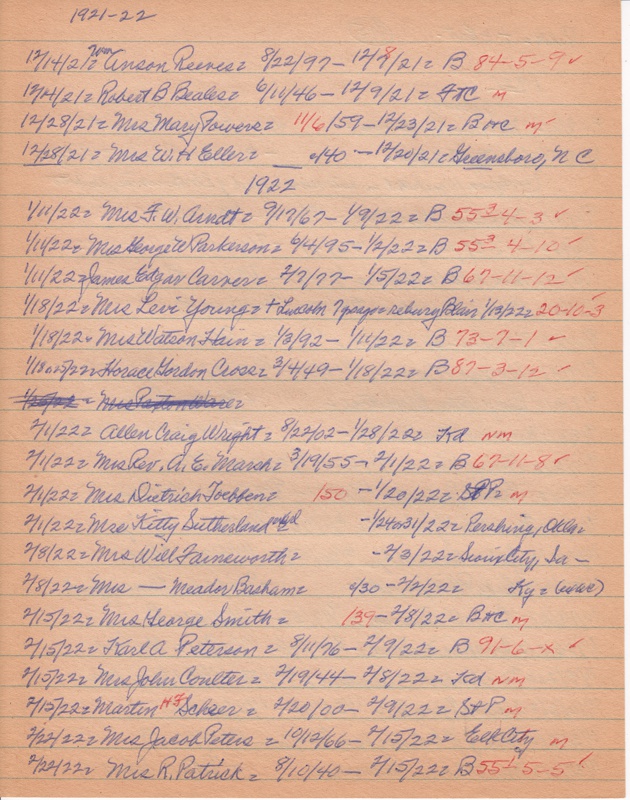 1921-22
12/14/21= Mrs Anson Reeves= 8/22/97- 12/8/21= B 84-5-9✓
12/14/21= Robert B Beales= 6/11/46- 12/9/21= A+C m
12/28/21= Mrs Mary Powers= 11/6/59-12/23/21= B+C m
12/28/21= Mrs W.H Eller= c/40 -12/20/21= Greensboro, N C
1922
1/11/22= Mrs F. W. Arndt= 9/17/67- 1/9/22= B 55-4-3 ✓
1/11/22= Mrs George W Parkerson= 6/4/95-1/2/22= B 55 4-10✓
1/11/22= James Edgar Carver= 2/7/77- 1/5/22= B 67-11-12✓
1/18/22= Mrs Levi Young= + Lincoln 7 years= rebury Blair 1/13/22= 20-10-3
1/18/22= Mrs Watson Hain= 1/3/92- 1/11/22= B 73-7-1 ✓
Horace Gordon Cross= 3/4/49-1/18/22= B 87-3-12 ✓
1/25/22 = Mrs Ware=
2/1/22= Allen Craig Wright= 8/22/02-1/28/22= Kd nm
2/1/22= Mrs Rev. A. E. March= 3/19/55-2/1/22= B 67-11-8✓
2/1/22= Mrs Dietrich Toebben= 150 -1/20/22= St P= m
2/1/22= Mrs Kitty Sutherland -1/24or31/22= Pershing, Okla=
2/8/22= Mrs Will Farnsworth= -2/3/22= Sioux City, Ia-
2/8/22= Mrs — Meador Basham= c/30 -2/2/22= Ky=
2/15/22= Mrs George Smith= 139-2/8/22= B+C m
2/15/22= Karl A Peterson= 8/11/76- 2/9/22= B 91-6-x ✓
2/15/22= Mrs John Coulter= 2/19/44- 2/8/22= Kd nm
2/15/22= Martin HF Scheer= 2/20/00- 2/9/22= St P m
2/22/22= Mrs Jacob Peters= 10/12/66-2/15/22= Elk City m
2/22/22= Mrs R. Patrick= 8/10/40- 2/15/22= B 55 5-5✓